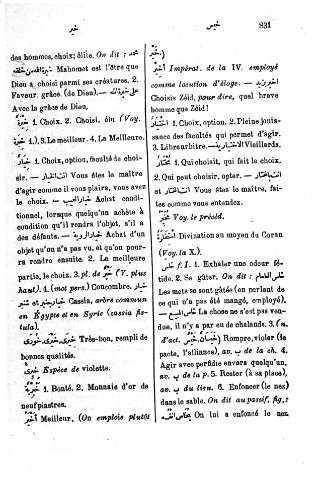 خير
خيس
831
des hommes, choix; élite. On dit : محمد
خيرة الله من خلقه Mahomet est l'être que
Dieu a choisi parmi ses créatures. 2.
Faveur, grâce (de Dieu). —
Avec la grâce de Dieu.
خيرة 1. Choix. 2. Choisi, élu (Voy.
1.). 3. Le meilleur. 4. La Meilleure.
خيار 1. Choix, option, faculté de choi-
sir. — Vous êtes le maître
d'agir comme il vous plaira, vous avez
le choix. — Achat condi-
tionnel, lorsque quelqu'un achète à
condition qu'il rendra l'objet, s'il a
des défauts. — Achat d'un
objet qu'on n'a pas vu, et qu'on pour-
ra rendre ensuite. 2. La meilleure
partie, le choix. 3. pl. de (V. plus
haut). 4. (mot pers.) Concombre.
Cassia, arbre commun
en Égypte et en Syrie (cassia fis-
tula).
Très-bon, rempli de
bonnes qualités.
Espèce de violette.
1. Bonté. 2. Monnaie d'or de
neuf piastres.
Meilleur. (On emploie plutôt
خير).
Impérat. de la IV. employé
comme locution d'éloge. —
Choisis Zéid, pour dire, quel brave
homme que Zéid!
1. Choix, option. 2. Pleine jouis-
sance des facultés qui permet d'agir.
3. Libre arbitre. — Vieillards.
1. Qui choisit, qui fait le choix.
2. Qui peut choisir, opter. —
Vous êtes le maître, fai-
tes comme vous entendez.
Voy. le précéd.
Division au moyen du Coran
(Voy. la X.).
خاس f. I. 1. Exhaler une odeur fé-
tide. 2. Se gâter. On dit :
Les mets se sont gâtés (en parlant de
ce qui n'a pas été mangé, employé).
— La chose ne s'est pas ven-
due, il n'y a pas eu de chalands. 3. (n.
d'act. Rompre, violer (le
pacte, l'alliance), av. ب de la ch. 4.
Agir avec perfidie envers quelqu'un,
av. ب de la p. 5. Rester (à sa place),
av. ب du lieu. 6. Enfoncer (le nez)
dans le sable. On dit au passif, fig.:
On lui a enfoncé le nez